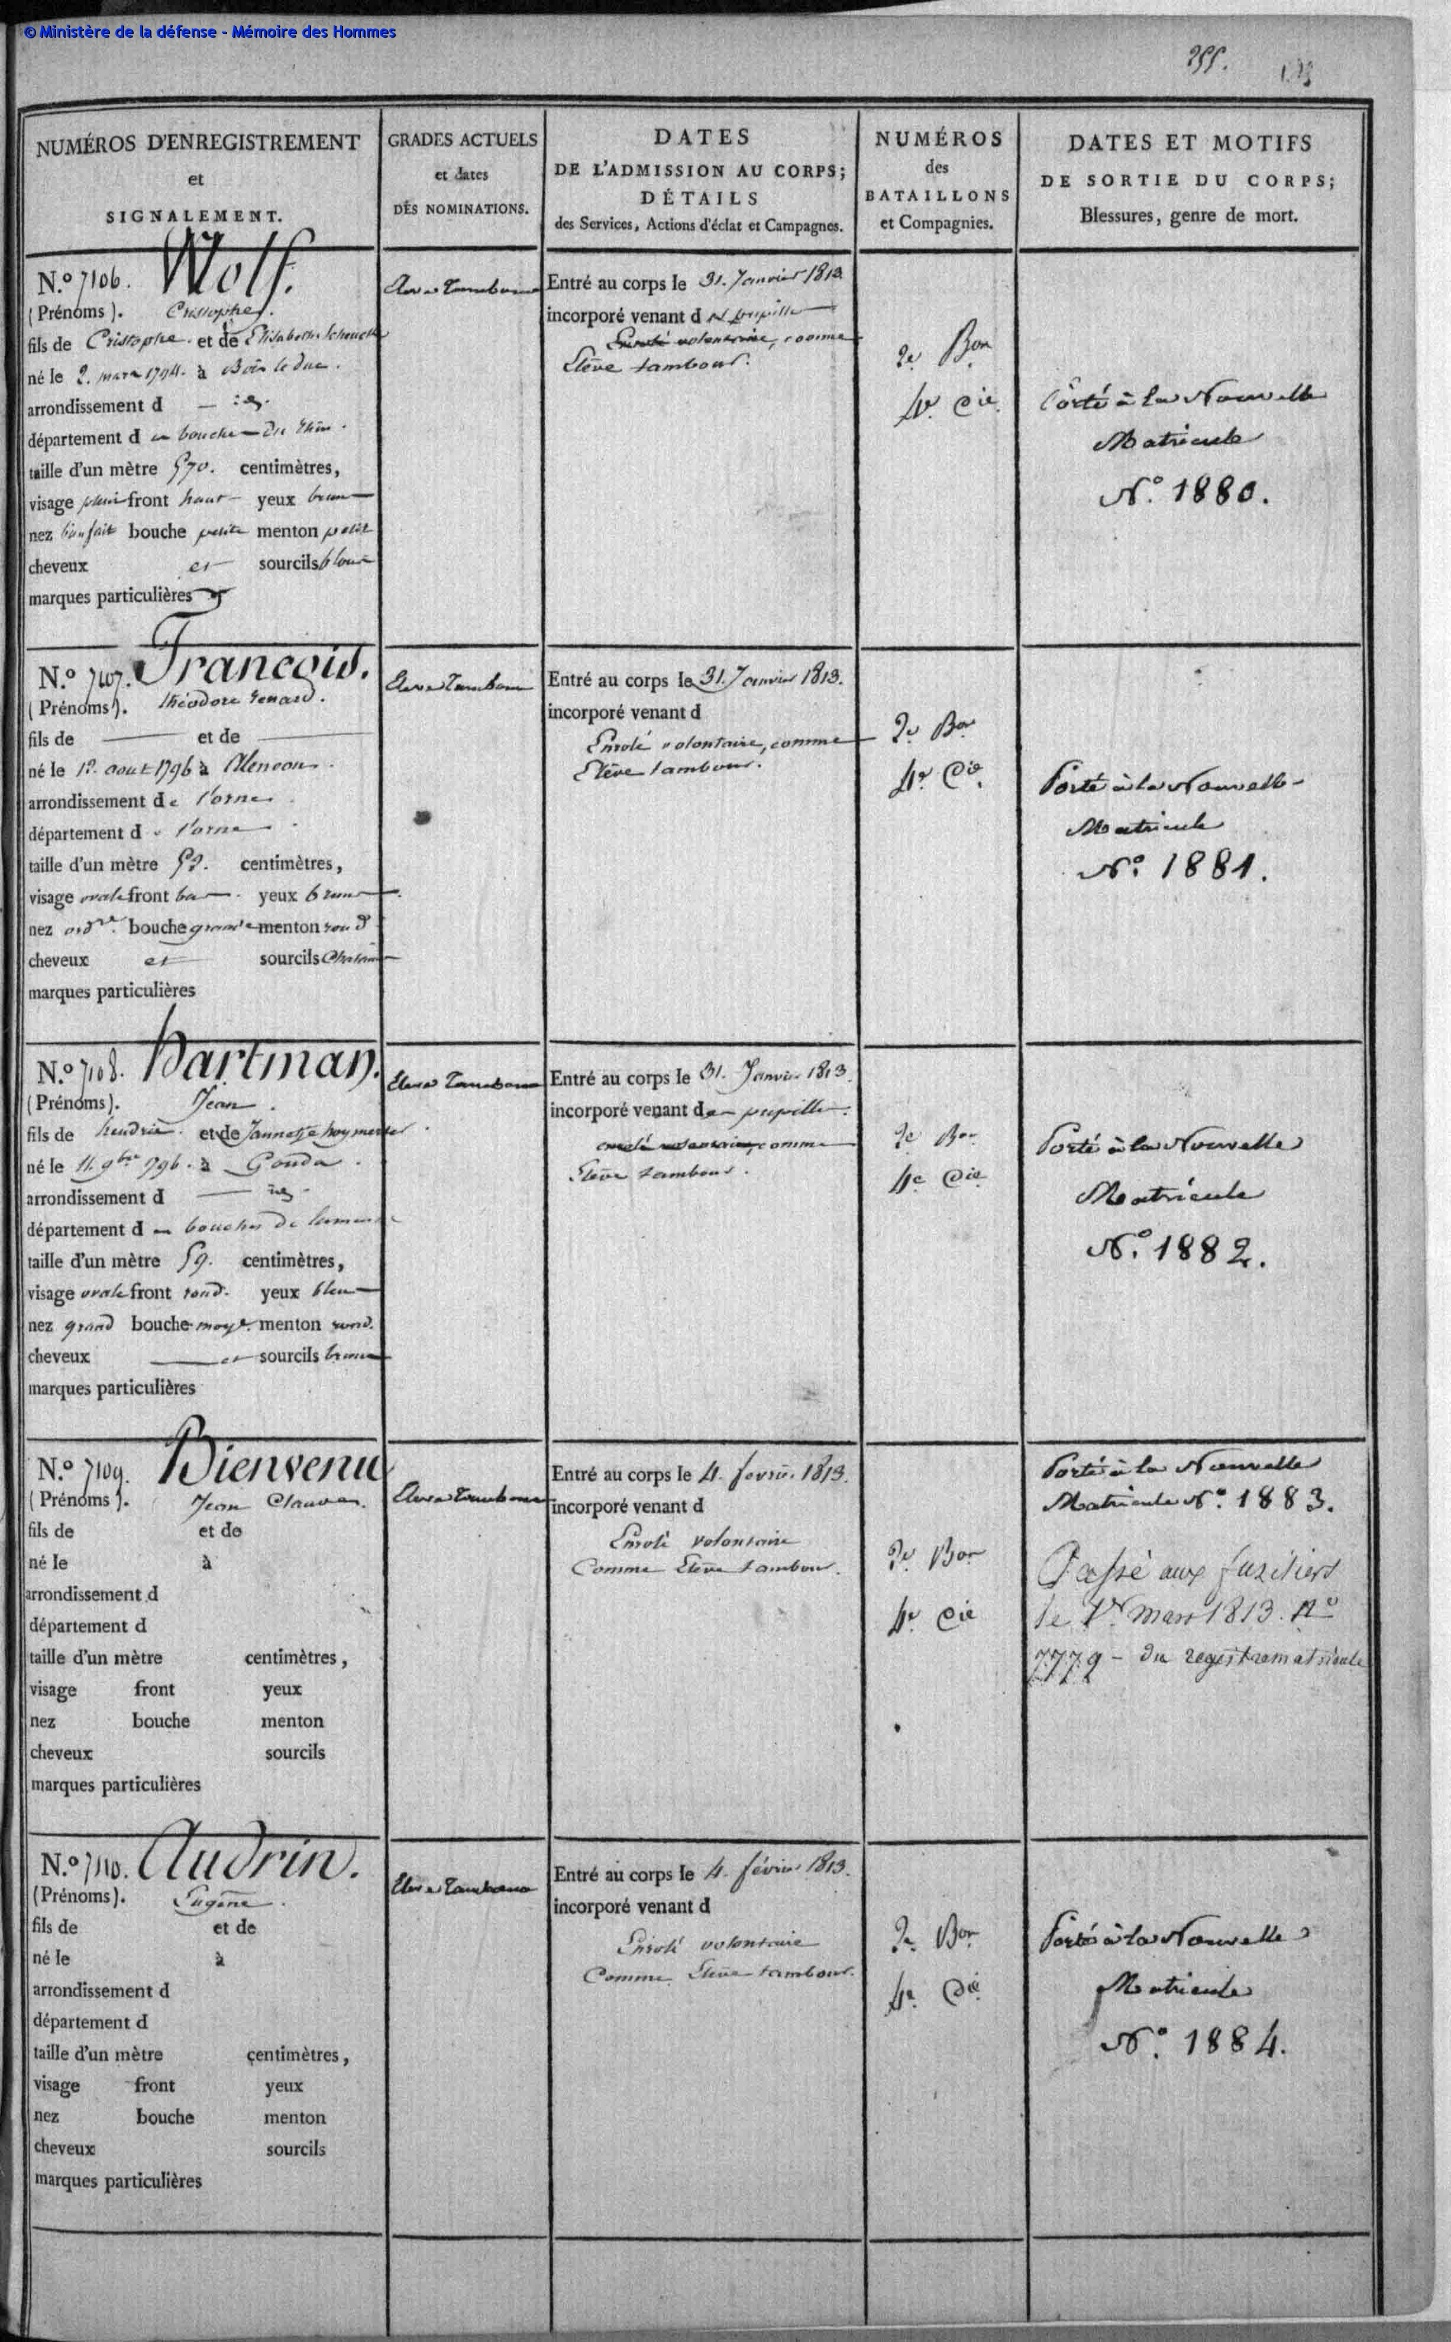 © Ministère de la défense - Mémoire des Hommes
255.
NUMÉROS D'ENREGISTREMENT
et
SIGNALEMENT.
GRADES ACTUELS
et dates
DES NOMINATIONS.
DATES
DE L'ADMISSION AU CORPS;
DÉTAILS
des Services, Actions d'éclat et Campagnes.
NUMÉROS
des
BATAILLONS
et Compagnies.
DATES ET MOTIFS
DE SORTIE DU CORPS;
Blessures, genre de mort.
N.º 7106. Wolf.
(Prénoms). Cristophe.
fils de Cristophe. et de Elisabeth
né le 2. mars 1794. à Bois le duc.
arrondissement d
département d es bouches du Rhin.
taille d'un mètre 570. centimètres,
visage plein front haut yeux brun
nez bienfait bouche petite menton petit
cheveux et sourcils blond
marques particulières
Eleve Tambour
Entré au corps le 31. Janvier 1813
incorporé venant des pupilles
Enrolé volontaire, comme
Elève tambour.
2e Bon
4e Cie.
Porté à la Nouvelle
Matricule
Nº. 1880.
N.º 7107. François.
(Prénoms). théodore renard.
fils de et de
né le 12. aout 1796 à Alencon.
arrondissement de l'orne
département d e l'orne
taille d'un mètre 52. centimètres,
visage ovale front bas yeux brun
nez ordre. bouche grande menton rond
cheveux et sourcils Chatain
marques particulières
Eleve Tambour
Entré au corps le 31. Janvier 1813.
incorporé venant d
Enrolé volontaire, comme
Elève tambour.
2e Bon
4e Cie.
Porté à la Nouvelle
Matricule
Nº. 1881.
N.º 7108. Hartman.
(Prénoms). Jean.
fils de hendric. et de Jannetje
né le 11. 9bre 1796. à Gouda.
arrondissement d
département d es bouches de la meuse
taille d'un mètre 59. centimètres,
visage ovale front rond. yeux bleu
nez grand bouche moye. menton rond.
cheveux et sourcils brun
marques particulières
Eleve Tambour
Entré au corps le 31. Janvier 1813.
incorporé venant des pupilles.
enrolé volontaire, comme
Elève tambour.
2e Bon
4e Cie.
Porté à la Nouvelle
Matricule
Nº. 1882.
N.º 7109. Bienvenu
(Prénoms). Jean Claude.
fils de et de
né le à
arrondissement d
département d
taille d'un mètre centimètres,
visage front yeux
nez bouche menton
cheveux sourcils
marques particulières
Eleve Tambour
Entré au corps le 4. fevrier 1813.
incorporé venant d
Enrolé volontaire
Comme Elève tambour.
2e Bon
4e Cie
Porté à la Nouvelle
Matricule Nº. 1883.
Passé aux fusiliers
le 1er mars 1813. Nº
7779 - du registre matricule
N.º 7110. Audrin.
(Prénoms). Eugène.
fils de et de
né le à
arrondissement d
département d
taille d'un mètre centimètres,
visage front yeux
nez bouche menton
cheveux sourcils
marques particulières
Eleve Tambour
Entré au corps le 4. février 1813.
incorporé venant d
Enrolé volontaire
Comme Elève tambour.
2e Bon
4e Cie.
Porté à la Nouvelle
Matricule
Nº. 1884.